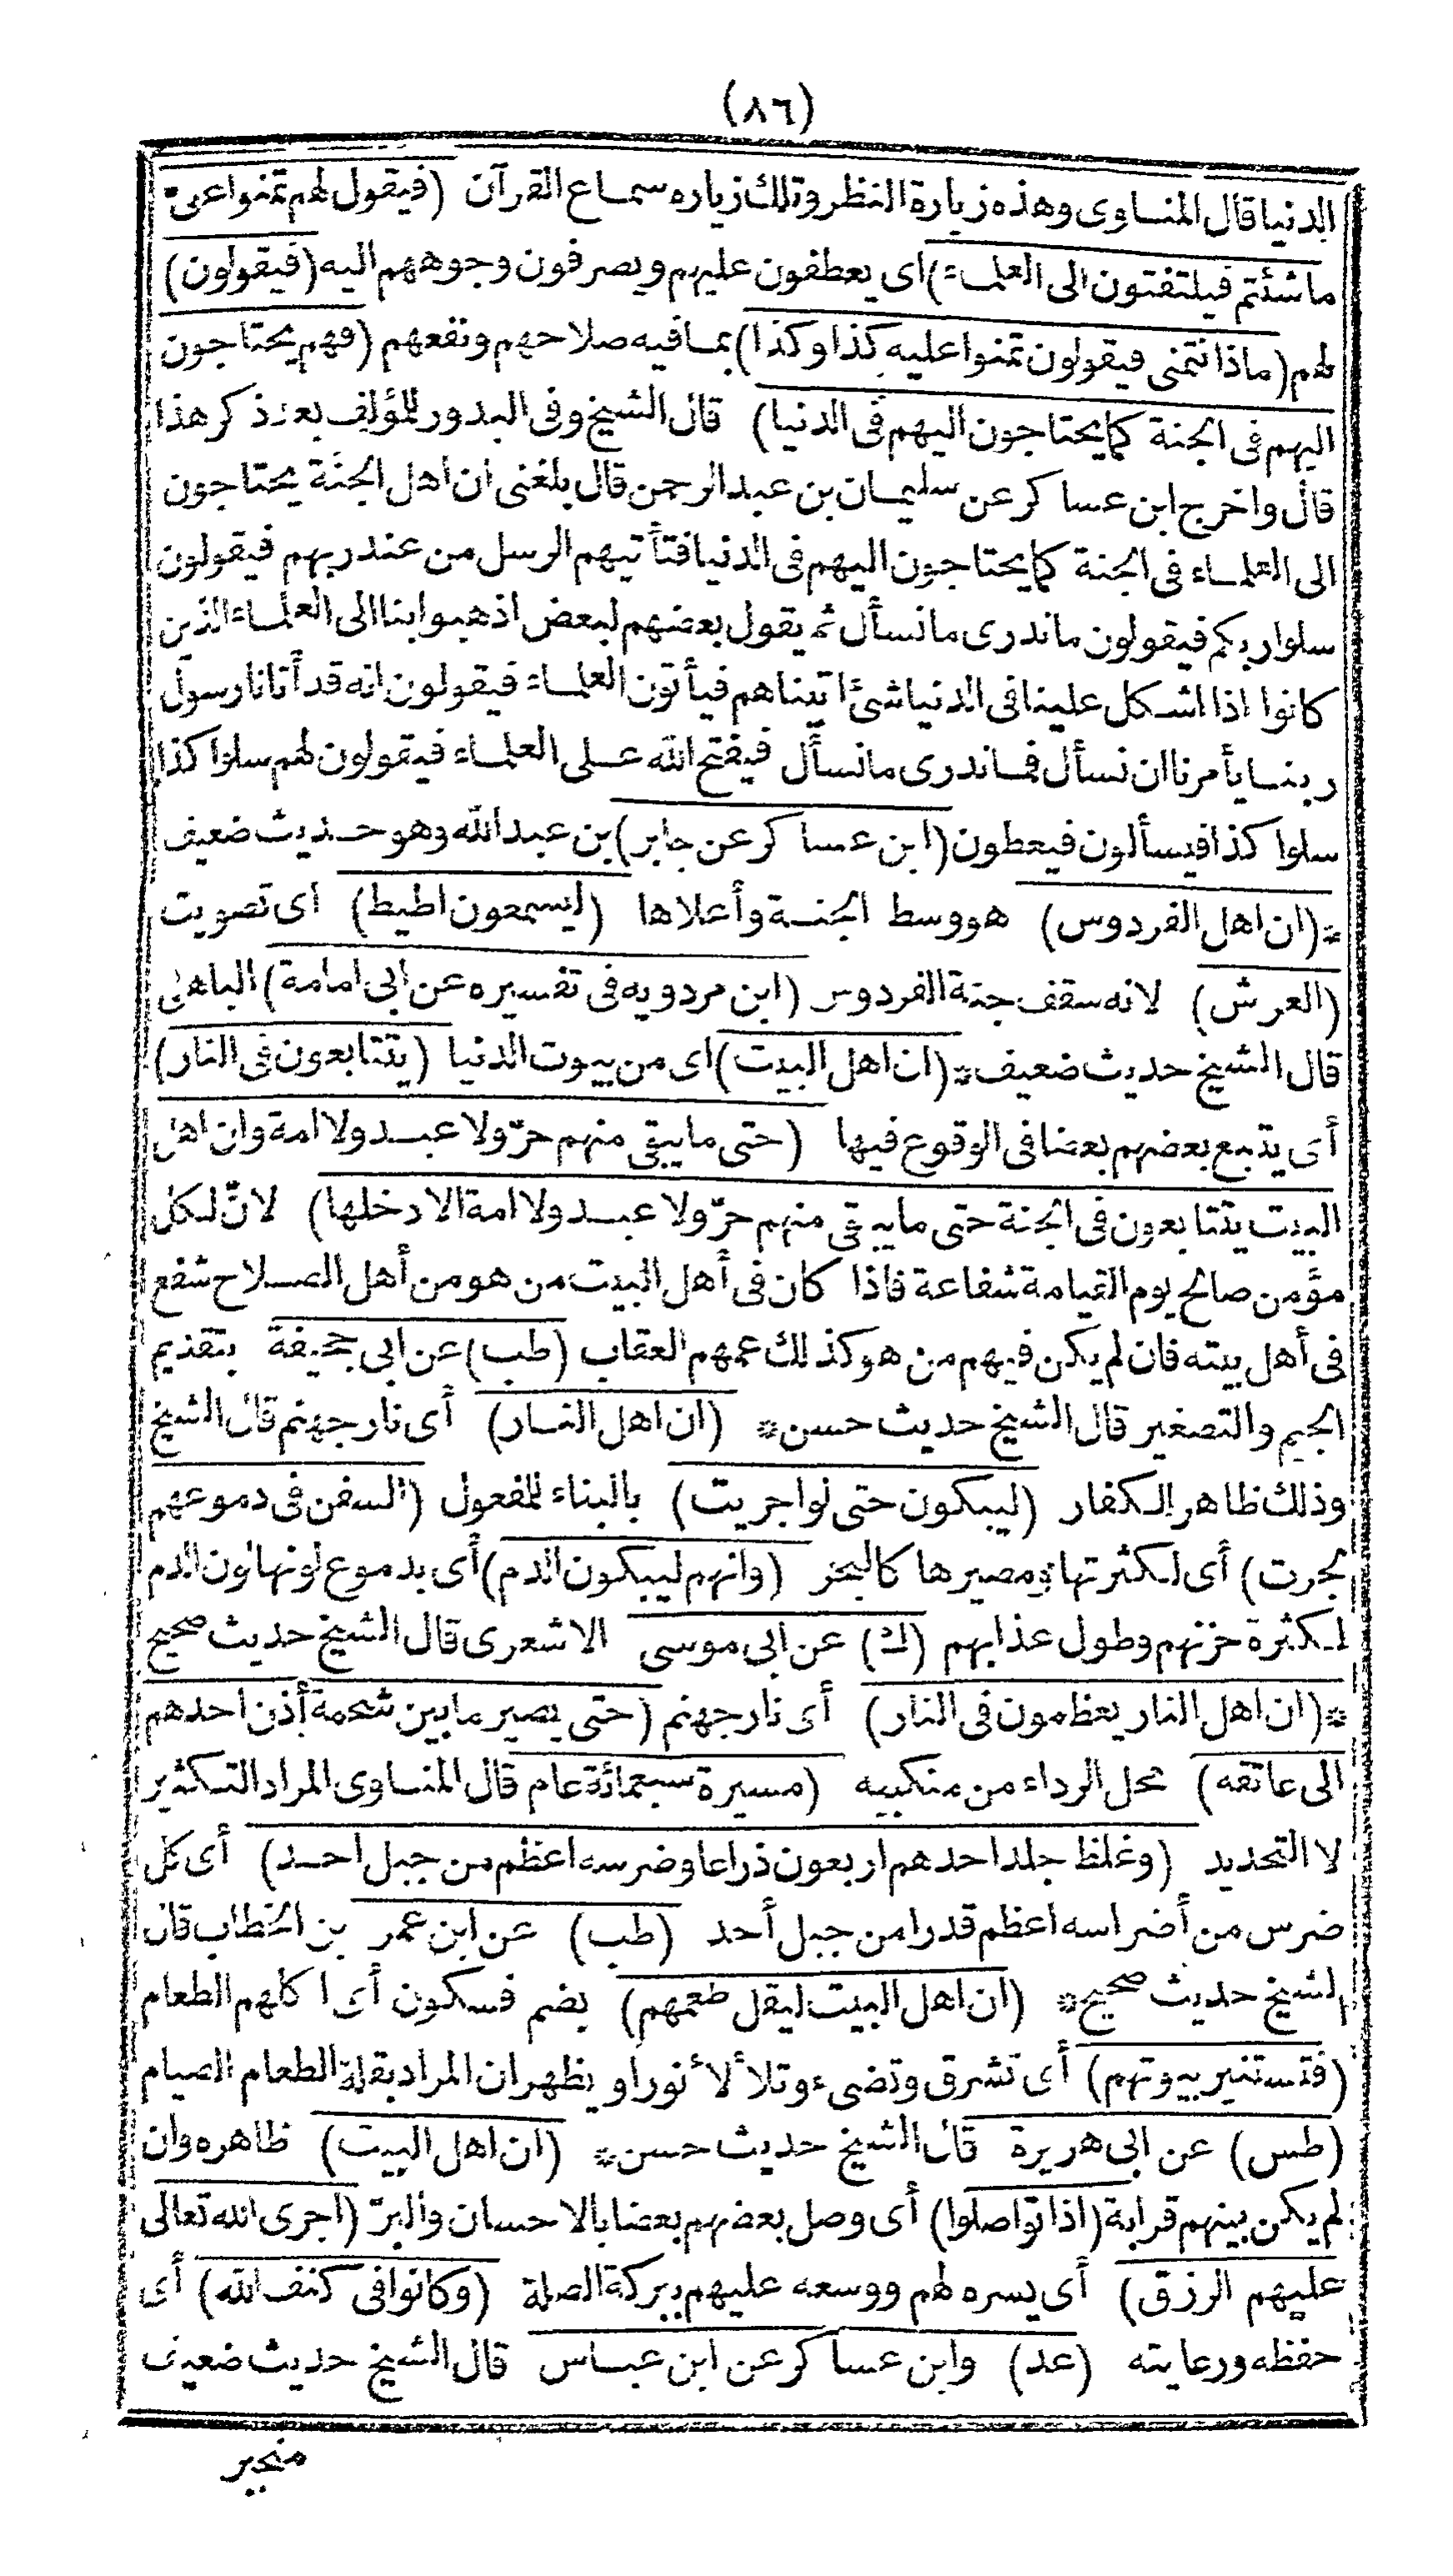 (٨٦)
الدنيا قال المناوى وهذه زيارة النظر وتلك زياره سماع القرآن (فيقول لهم تمنوا على
ما شئتم فيلتفتون الى العلماء) اى يعطفون عليهم ويصرفون وجوههم اليه (فيقولون)
لهم (ماذا نتمنى فيقولون تمنوا عليه كذا وكذا) بما فيه صلاحهم ونفعهم (فهم يحتاجون
اليهم فى الجنة كما يحتاجون اليهم فى الدنيا) قال الشيخ وفى البدور للمؤلف بعد ذكر هذا
قال واخرج ابن عساكر عن سليمان بن عبد الرحمن قال بلغنى ان اهل الجنة يحتاجون
الى العلماء فى الجنة كما يحتاجون اليهم فى الدنيا فتأتيهم الرسل من عند ربهم فيقولون
سلوا ربكم فيقولون ما ندرى ما نسأل ثم يقول بعضهم لبعض اذهبوا بنا الى العلماء الذين
كانوا اذا اشكل علينا فى الدنيا شئ اتيناهم فيأتون العلماء فيقولون انه قد أتانا رسول
ربنا يأمرنا ان نسأل فما ندرى ما نسأل فيفتح الله على العلماء فيقولون لهم سلوا كذا
سلوا كذا فيسألون فيعطون (ابن عساكر عن جابر) بن عبد الله وهو حديث ضعيف
* (ان اهل الفردوس) هو وسط الجنة وأعلاها (ليسمعون اطيط) اى تصويت
(العرش) لانه سقف جنة الفردوس (ابن مردويه فى تفسيره عن ابى امامة) الباهلى
قال الشيخ حديث ضعيف * (ان اهل البيت) اى من بيوت الدنيا (يتتابعون فى النار)
أى يتبع بعضهم بعضا فى الوقوع فيها (حتى ما يبقى منهم حرّ ولا عبد ولا امة وان اهل
البيت يتتابعون فى الجنة حتى ما يبقى منهم حرّ ولا عبد ولا امة الا دخلها) لانّ لكل
مؤمن صالح يوم القيامة شفاعة فاذا كان فى أهل البيت من هو من أهل الصلاح شفع
فى أهل بيته فان لم يكن فيهم من هو كذلك عمهم العقاب (طب) عن ابى جحيفة بتقديم
الجيم والتصغير قال الشيخ حديث حسن * (ان اهل النار) أى نار جهنم قال الشيخ
وذلك ظاهر لكفار (ليبكون حتى لو اجريت) بالبناء للمفعول (السفن فى دموعهم
لجرت) أى لكثرتها ومصيرها كالبحر (وانهم ليبكون الدم) أى بدموع لونها لون الدم
لكثرة حزنهم وطول عذابهم (ك) عن ابى موسى الاشعرى قال الشيخ حديث صحيح
* (ان اهل النار يعظمون فى النار) أى نار جهنم (حتى يصير ما بين شحمة أذن احدهم
الى عاتقه) محل الرداء من منكبيه (مسيرة سبعمائة عام قال المناوى المراد التكثير
لا التحديد (وغلظ جلد احدهم اربعون ذراعا وضرسه اعظم من جبل احد) أى كل
ضرس من أضراسه اعظم قدرا من جبل أحد (طب) عن ابن عمر بن الخطاب قال
الشيخ حديث صحيح * (ان اهل البيت ليقل طعمهم) بضم فسكون أى اكلهم الطعام
(فتستنير بيوتهم) أى تشرق وتضىء وتلألأ نورا ويظهر ان المراد بقلة الطعام الصيام
(طس) عن ابى هريرة قال الشيخ حديث حسن * (ان اهل البيت) ظاهره وان
لم يكن بينهم قرابة (اذا تواصلوا) أى وصل بعضهم بعضا بالاحسان والبرّ (اجرى الله تعالى
عليهم الرزق) أى يسره لهم ووسعه عليهم ببركة الصلة (وكانوا فى كنف الله) أى
حفظه ورعايته (عد) وابن عساكر عن ابن عباس قال الشيخ حديث ضعيف
منجبر